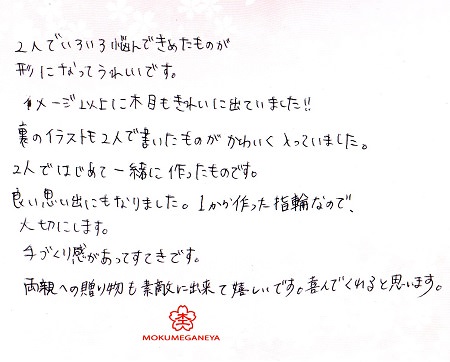 2人でいろいろ悩んできめたものが
形になってうれしいです。
イメージ以上に木目もきれいに出ていました!!
裏のイラストも2人で書いたものがかわいく入っていました。
2人ではじめて一緒に作ったものです。
良い思い出にもなりました。1から作った指輪なので、
大切にします。
手づくり感があってすてきです。
両親への贈り物も素敵に出来て嬉しいです。喜んでくれると思います。
MOKUMEGANEYA